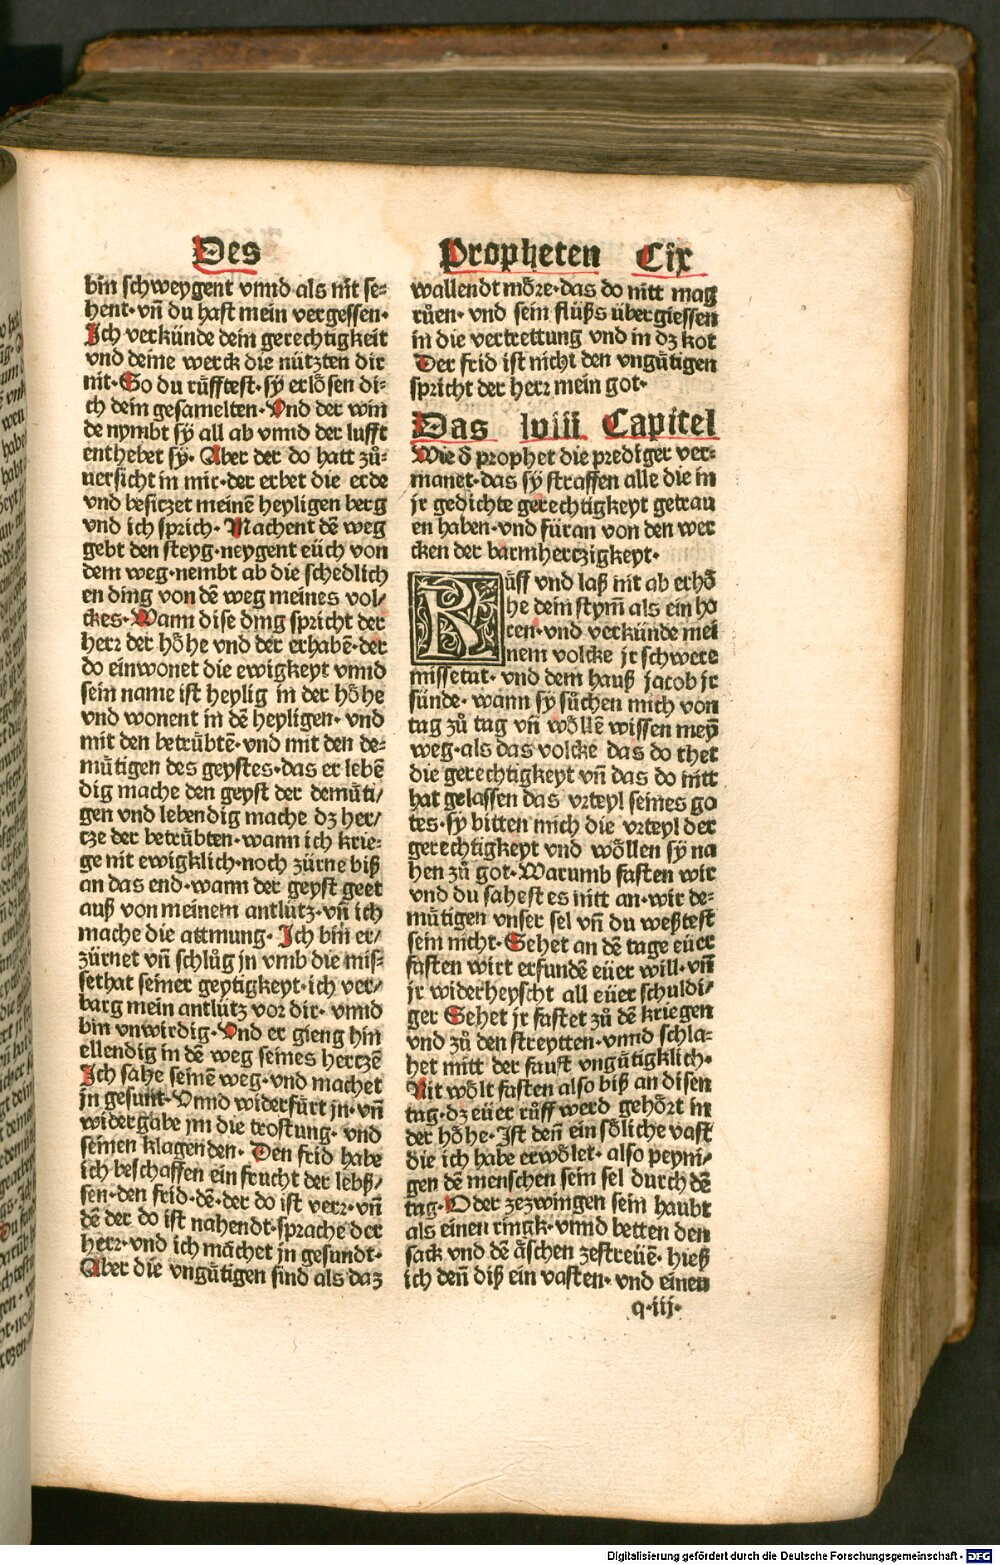 Des
bin schweygent vnnd als nit se-
hent· vñ du hast mein vergessen·
Ich verkünde dein gerechtigkeit
vnd deine werck die nützten dir
nit· So du růfftest· sÿ erlösen di-
ch dein gesamelten· Vnd der win
de nymbt sÿ all ab vnnd der lufft
enthebet sÿ· Aber der do hatt zů-
uersicht in mir· der erbet die erde
vnd besitzet meinē heyligen berg
vnd ich sprich· Machent dē weg
gebt den steyg· neygent eüch von
dem weg· nembt ab die schedlich
en ding von dē weg meines vol/
ckes· Wann dise ding spricht der
herr der höhe vnd der erhabē· der
do einwonet die ewigkeyt vnnd
sein name ist heylig in der höhe
vnd wonent in dē heyligen· vnd
mit den betrübtē· vnd mit den de-
můtigen des geystes· das er lebē
dig mache den geyst der demůti/
gen vnd lebendig mache dz her/
tze der betrübten· wann ich krie-
ge nit ewigklich· noch zürne biß
an das end· wann der geyst geet
auß von meinem antlütz· vñ ich
mache die attmung· Ich bin er/
zürnet vñ schlůg jn vmb die mis-
sethat seiner geytigkeyt· ich ver/
barg mein antlütz vor dir· vnnd
bin vnwirdig· Vnd er gieng hin
ellendig in dē weg seines hertzē
Ich sahe seinē weg· vnd machet
jn gesunt· Vnnd widerfürt jn· vñ
widergabe jm die trostung· vnd
seinen klagenden· Den frid habe
ich beschaffen ein frucht der lebß/
sen· den frid· dē· der do ist verr· vñ
dē der do ist nahendt· sprache der
herr· vnd ich machet jn gesundt·
Aber die vngůtigen sind als daz
Propheten Cix
wallendt möre· das do nitt mag
růen· vnd sein flüßs übergiessen
in die vertrettung vnd in dz kot
Der frid ist nicht den vngůtigen
spricht der herr mein got·
Das lviii Capitel
Wie d̄ prophet die prediger ver-
manet· das sÿ straffen alle die in
jr gedichte gerechtigkeyt getrau
en haben· vnd füran von den wer
cken der barmhertzigkeyt·
Růff vnd laß nit ab erhö
he dein stym̄ als ein ho
ren· vnd verkünde mei
nem volcke jr schwere
missetat· vnd dem hauß jacob jr
sünde· wann sy sůchen mich von
tag zů tag vñ wöllē wissen meÿ
weg· als das volcke das do thet
die gerechtigkeyt vñ das do nitt
hat gelassen das vrteyl seines go
tes· sy bitten mich die vrteyl der
gerechtigkeyt vnd wöllen sÿ na
hen zů got· Warumb fasten wir
vnd du sahest es nitt an· wir de-
můtigen vnser sel vñ du weßtest
sein nicht· Sehet an dē tage eüer
fasten wirt erfundē eüer will· vñ
jr widerheyscht all eüer schuldi/
ger Sehet jr fastet zů dē kriegen
vnd zů den streytten· vnnd schla-
het mitt der faust vngůtigklich·
Nit wölt fasten also biß an disen
tag· dz eüer růff werd gehört in
der höhe· Ist deñ ein söliche vast/
die ich habe erwölet· also peyni/
gen dē menschen sein sel durch dē
tag· Oder zezwingen sein haubt
als einen ringk· vnnd betten den
sack vnd dē äschen zestreüē· hieß
ich deñ diß ein vasten· vnd einen
q·iij·
Digitalisierung gefördert durch die Deutsche Forschungsgemeinschaft - DFG